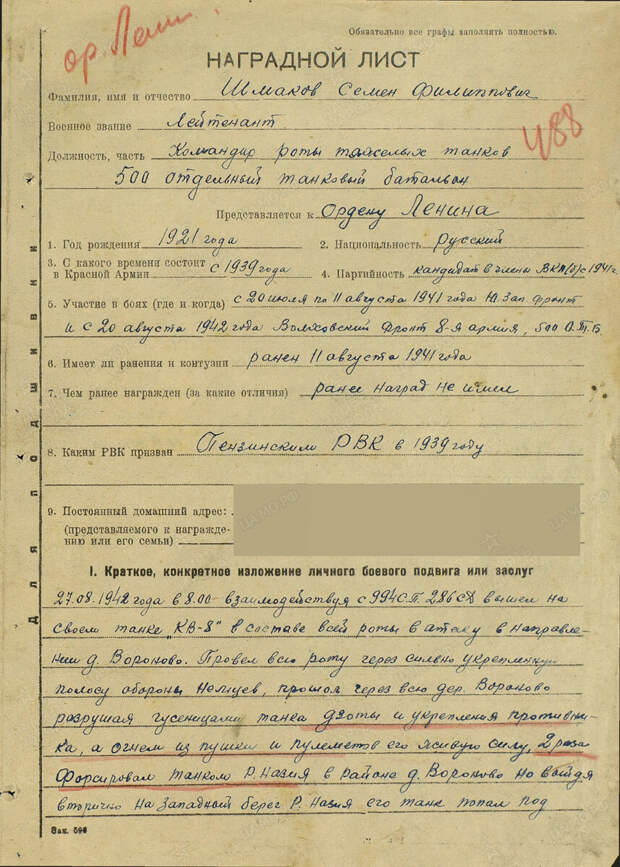 Обязательно все графы заполнять полностью.
ор. Лен
НАГРАДНОЙ ЛИСТ
Фамилия, имя и отчество Шмаков Семен Филиппович
Военное звание Лейтенант
488
Должность, часть Командир роты тяжелых танков
500 отдельный танковый батальон
Представляется к Ордену Ленина
1. Год рождения 1921 года 2. Национальность Русский
3. С какого времени состоит
в Красной Армии с 1939 года 4. Партийность кандидат в члены ВКП(б) с 1941 г.
5. Участие в боях (где и когда) с 20 июля по 11 августа 1941 года Ю. Зап. фронт
и с 20 августа 1942 года Волховский фронт 8-я армия, 500 О.Т.Б.
6. Имеет ли ранения и контузии ранен 11 августа 1941 года
7. Чем ранее награжден (за какие отличия) ранее наград не имел
8. Каким РВК призван Пензинском РВК в 1939 году
9. Постоянный домашний адрес:
(представляемого к награжде-
нию или его семьи)
Для подшивки
I. Краткое, конкретное изложение личного боевого подвига или заслуг
27.08.1942 года в 8.00 взаимодействуя с 994 С.П. 286 СД вышел на
своем танке „КВ-8" в составе всей роты в атаку в направле-
нии д. Вороново. Провел всю роту через сильно укрепленную
полосу обороны немцев, прошол через всю дер. Вороново
разрушая гусеницами танка дзоты и укрепления противни-
ка, а огнем из пушки и пулеметв его живую силу, 2 раза
форсировал танком Р. Назия в районе д. Вороново но выйдя
вторично на западный берег Р. Назия его танк попал под
Зак. 594
ЦАМО РФ